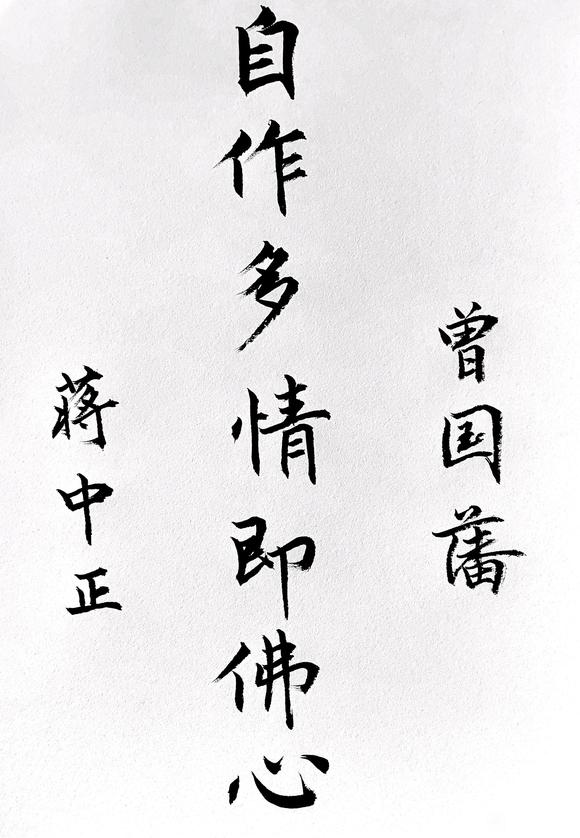 曾国藩
自作多情即佛心
蒋中正